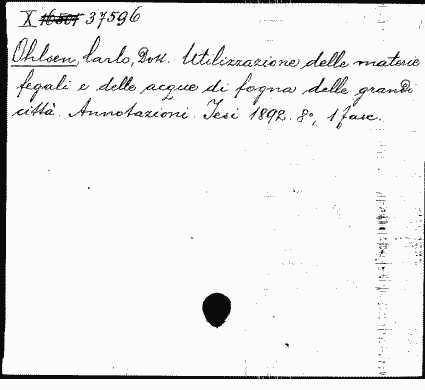 X 16501 37596
Ohlsen, Carlo, Dott. Utilizzazione delle materie
fegali e delle acque di fogna delle grandi
città. Annotazioni. Jesi 1892. 8°, 1 fasc.